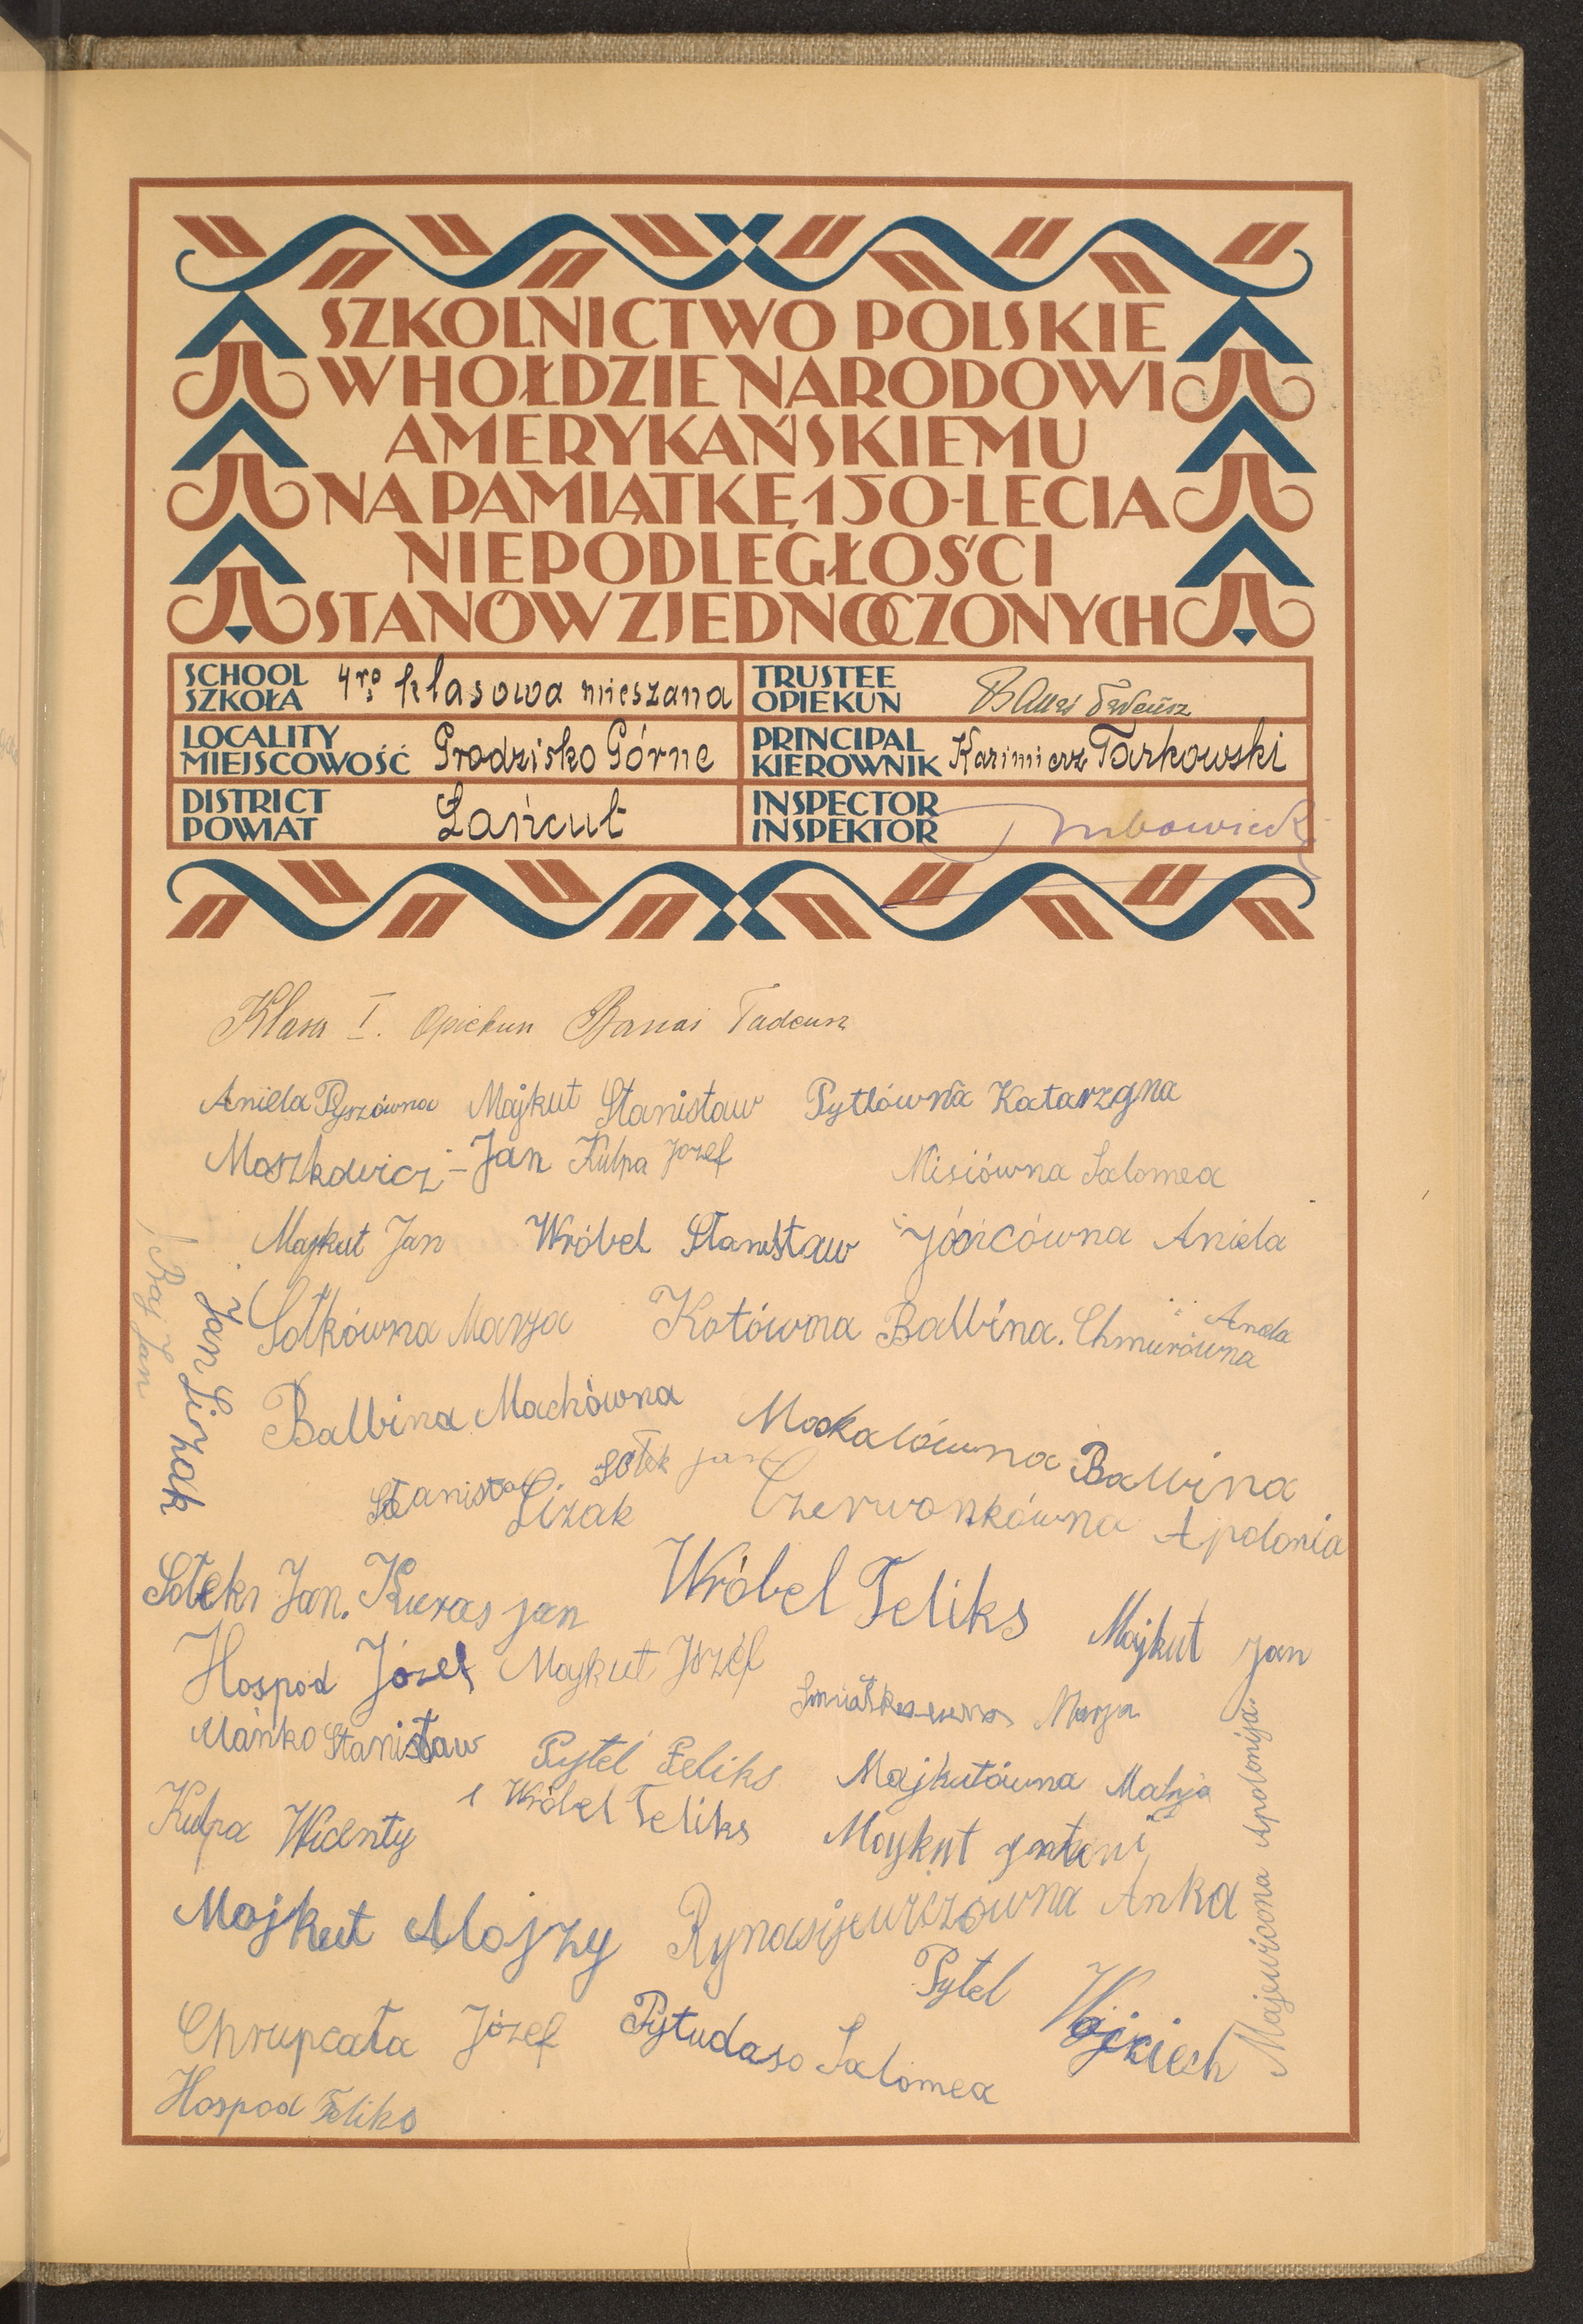 SZKOLNICTWO POLSKIE
W HOŁDZIE NARODOWI
AMERYKAŃSKIEMU
NA PAMIĄTKĘ 150-LECIA
NIEPODLEGŁOŚCI
STANÓW ZJEDNOCZONYCH
SCHOOL
SZKOŁA
4ro klasowa mieszana
TRUSTEE
OPIEKUN
Banaś Tadeusz
LOCALITY
MIEJSCOWOŚĆ
Grodzisko Górne
PRINCIPAL
KIEROWNIK
Kazimierz Tarkowski
DISTRICT
POWIAT
Łańcut
INSPECTOR
INSPEKTOR
Klasa I. Opiekun Banaś Tadeusz
Aniela Pyszówna Majkut Stanisław Pytlówna Katarzyna
Moszkowicz - Jan Kulpa Józef Misiówna Salomea
Majkut Jan Wróbel Stanisław Aniela
Sołkówna Marja Kotówna Balbina. Chmurówna Aniela
Baj Jan
Jan Lizak
Balbina Machówna Balbina
Stanisław Lizak Sołek Jan Czerwonkówna Apolonia
Sołek Jan. Kuras jan Wróbel Feliks Majkut jan
Hospod Józef Majkut Józef
Marja
Mańko Stanisław Pytel Feliks Majkutówna Marja
Kulpa Wicenty Wróbel Feliks Majkut
Majkut Alojzy Anka
Pytel Wojciech
Chrupcała Józef Salomea
Hospod Feliks
Apolonija